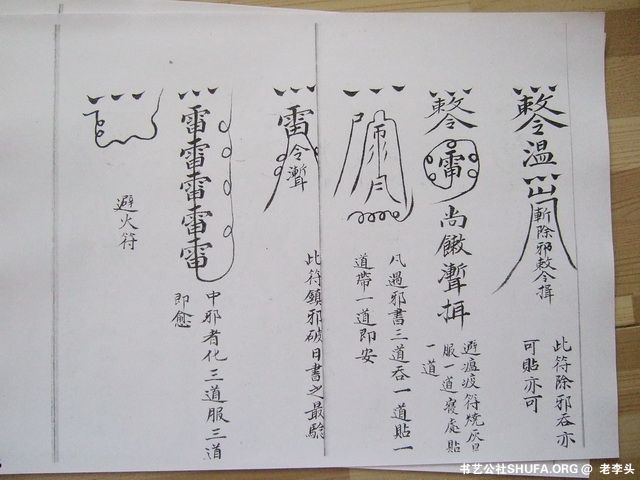 敕令溫
斬除邪敕令揖
此符除邪吞亦
可貼亦可
敕令
雷
尚
避瘟疫符燒灰日
服一道寢處貼
一道
凡遇邪書三道吞一道貼一
道帶一道即安
雷
令聻
此符鎮邪破日書之最驗
雷雷雷雷雷
中邪者化三道服三道
即愈
避火符
书艺公社SHUFA.ORG @ 老李头